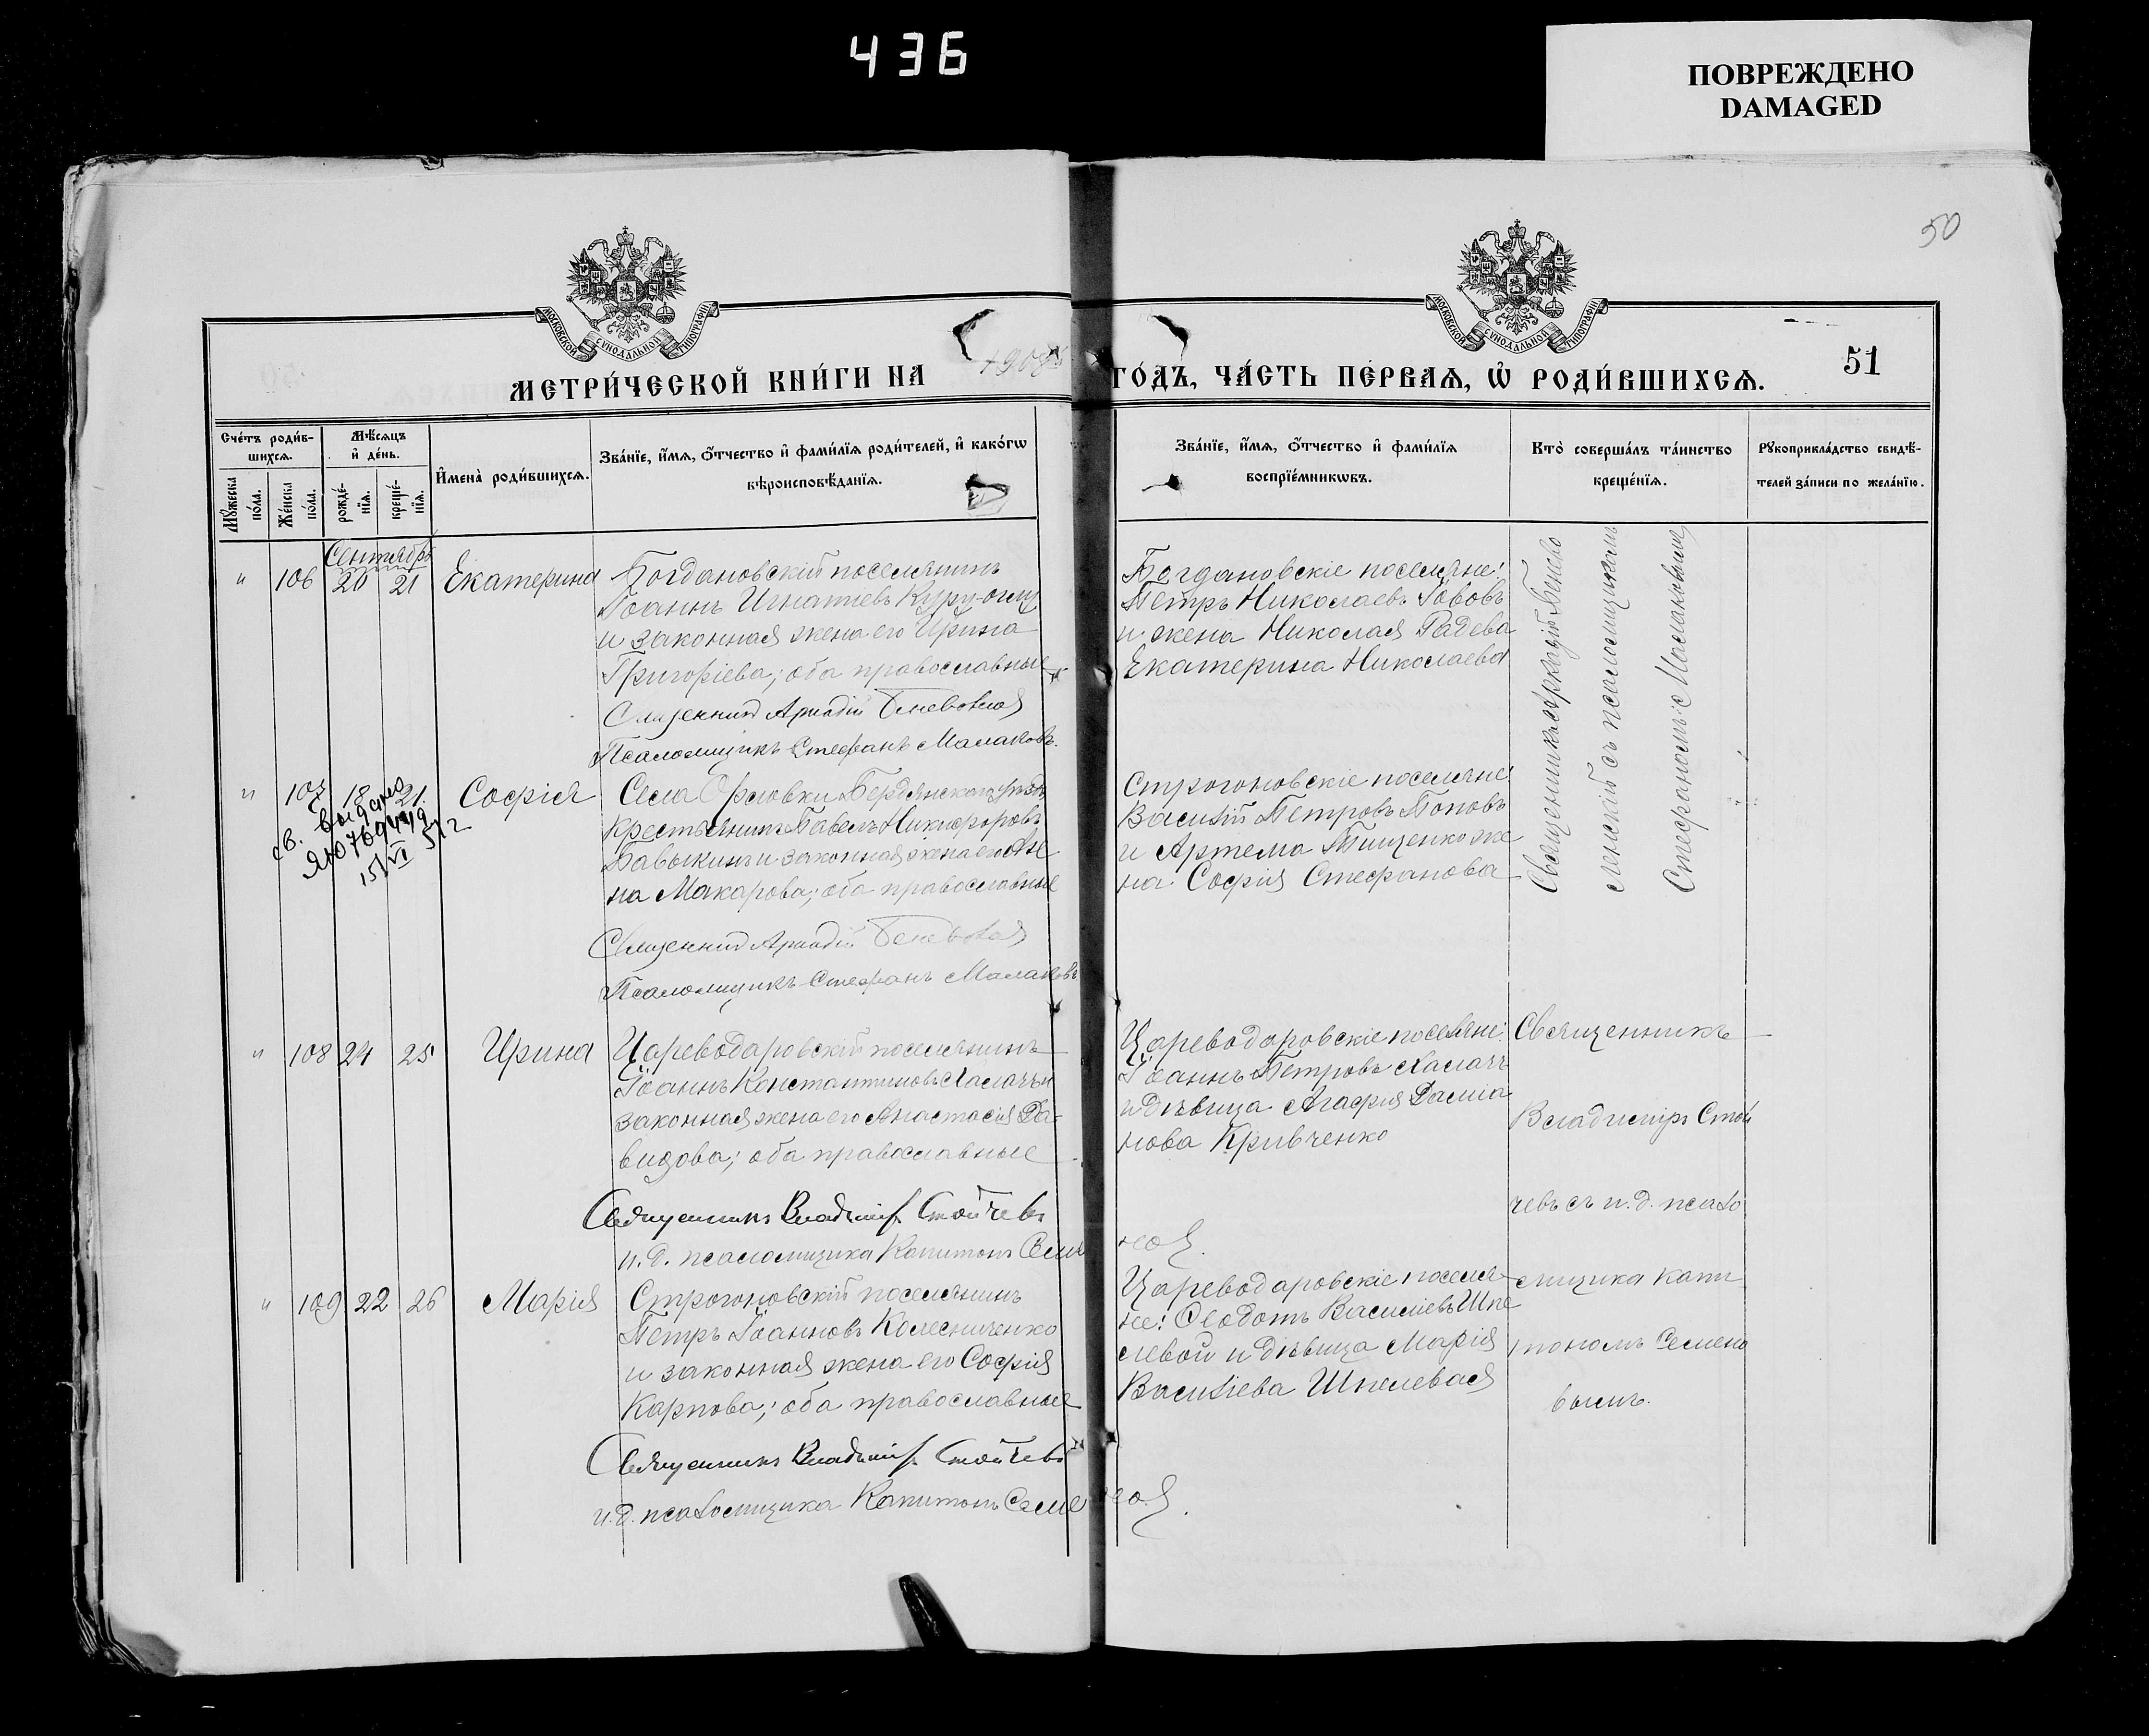 436
ПОВРЕЖДЕНО
DAMAGED
50
МОСКОВСКОЙ СѴНОДАЛЬНОЙ ТИПОГРАФІИ
МОСКОВСКОЙ СѴНОДАЛЬНОЙ ТИПОГРАФІИ
МЕТРИ́ЧЕСКОЙ КНИ́ГИ НА 1908й ГО́ДЪ, ЧА́СТЬ ПЕ́РВАѦ, Ѽ РОДИ́ВШИХСѦ.
51
Сче́тъ роди́в-
шихсѧ.
Мꙋ́жеска по́ла.
Же́нска по́ла.
Мѣ́сѧцъ
и҆ де́нь.
рожде́-
нїѧ.
креще́-
нїѧ.
И҆мена̀ роди́вшихсѧ.
Зва́нїе, и҆́мѧ, ѻ҆́тчество и҆ фами́лїѧ роди́телей, и҆ како́гѡ
вѣроисповѣ́данїѧ.
Зва́нїе, и҆́мѧ, ѻ҆́тчество и҆ фами́лїѧ
воспрїе́мникѡвъ.
Кто̀ соверша́лъ та́инство
креще́нїѧ.
Рꙋкоприкла́дство свидѣ́-
телей за́писи по жела́нїю.
Сентябрь
" 106 20 21 Екатерина
Богдановскій поселянинъ
Іоаннъ Игнатіевъ Куру-оглу
и законная жена его Ирина
Григоріева; оба православные
Священникъ Аркадій
Псаломщикъ Стефанъ Малаковъ.
Богдановскіе поселяне:
Петръ Николаевъ Іововъ
и жена Николая Радева
Екатерина Николаева
Священникъ Аркадій Бенево
ленскій съ псаломщикомъ
Стефаномъ Малаковымъ
" 107 18 21 Софія
св. выдано
15/VI
Села Орловки Бердянскаго уѣзда
крестьянинъ Павелъ Никифоровъ
Бавыкинъ и законная жена его Ан
на Макарова; оба православные
Священникъ Аркадій
Псаломщикъ Стефанъ Малаковъ
Строгоновскіе поселяне
Василій Петровъ Поповъ
и Артема Тищенко же
на Софія Стефанова
" 108 24 25 Ирина
Цареводаровскій поселянинъ
Іоаннъ Константиновъ Халачъ и
законная жена его Анастасія Да-
видова; оба православные
Священникъ Владиміръ Стойчевъ
и.д. псаломщика Капитонъ Семе
новъ.
Цареводаровскіе поселяне:
Іоаннъ Петровъ Халачъ
и дѣвица Агафія Даміа
нова Кривченко
Священникъ
Владиміръ Стой
чевъ съ и.д. псало
" 109 22 26 Марія
Строгоновскій поселянинъ
Петръ Іоанновъ Колесниченко
и законная жена его Софія
Карпова; оба православные
Священникъ Владиміръ Стойчевъ
и.д. псаломщика Капитонъ Семе
новъ.
Цареводаровскіе поселя
не: Ѳеодотъ Василіевъ Шпе
левой и дѣвица Марія
Василіева Шпелевая
мщика Капи
тономъ Семено
вымъ.